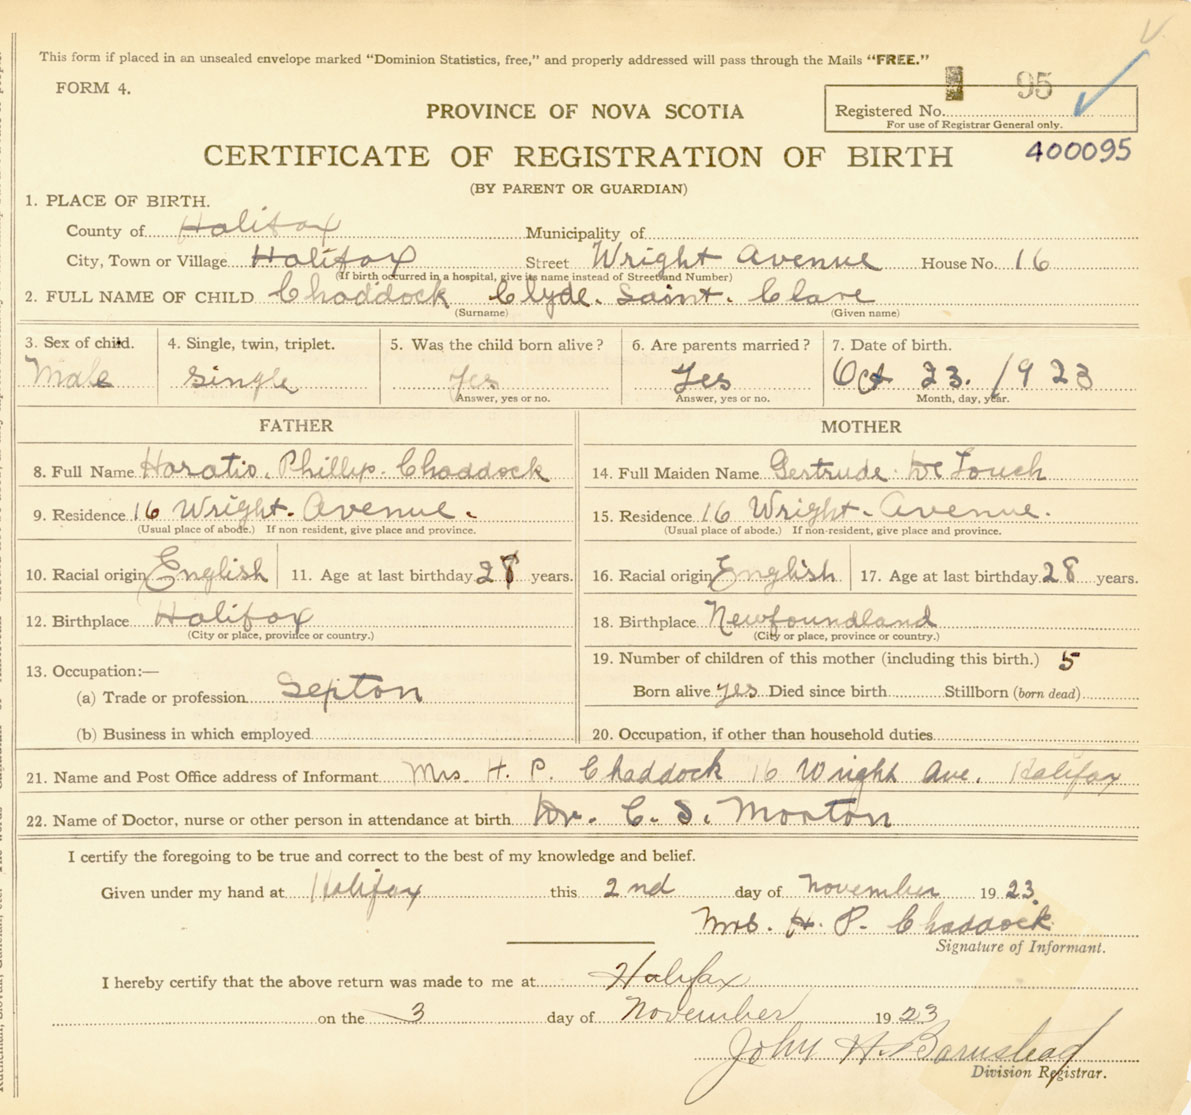 This form if placed in an unsealed envelope marked "Dominion Statistics, free," and properly addressed will pass through the Mails "FREE."
FORM 4.
95
PROVINCE OF NOVA SCOTIA
Registered No.
For use of Registrar General only.
CERTIFICATE OF REGISTRATION OF BIRTH
400095
(BY PARENT OR GUARDIAN)
1. PLACE OF BIRTH.
County of Halifax Municipality of
City, Town or Village Halifax Street Wright Avenue House No. 16
(If birth occurred in a hospital, give its name instead of Street and Number)
2. FULL NAME OF CHILD Chaddock Clyde. Saint. Clare
(Surname) (Given name)
3. Sex of child. 4. Single, twin, triplet. 5. Was the child born alive? 6. Are parents married? 7. Date of birth.
Male Single Yes Yes Oct 23. 1923
Answer, yes or no. Answer, yes or no. Month, day, year.
FATHER MOTHER
8. Full Name Horatio. Phillip. Chaddock 14. Full Maiden Name Gertrude De Touch
9. Residence 16 Wright. Avenue. 15. Residence 16 Wright. Avenue.
(Usual place of abode.) If non-resident, give place and province. (Usual place of abode.) If non-resident, give place and province.
10. Racial origin English 11. Age at last birthday 28 years. 16. Racial origin English 17. Age at last birthday 28 years.
12. Birthplace Halifax 18. Birthplace Newfoundland
(City or place, province or country.) (City or place, province or country.)
13. Occupation:— 19. Number of children of this mother (including this birth.) 5
(a) Trade or profession Septon Born alive yes Died since birth Stillborn (born dead)
(b) Business in which employed 20. Occupation, if other than household duties
21. Name and Post Office address of Informant Mrs. H. P. Chaddock 16 Wright Ave. Halifax
22. Name of Doctor, nurse or other person in attendance at birth Dr. C. S. Morton
I certify the foregoing to be true and correct to the best of my knowledge and belief.
Given under my hand at Halifax this 2nd day of November 1923.
Mrs. H. P. Chaddock
Signature of Informant.
I hereby certify that the above return was made to me at Halifax
on the 3 day of November 1923
John H. Barnstead
Division Registrar.